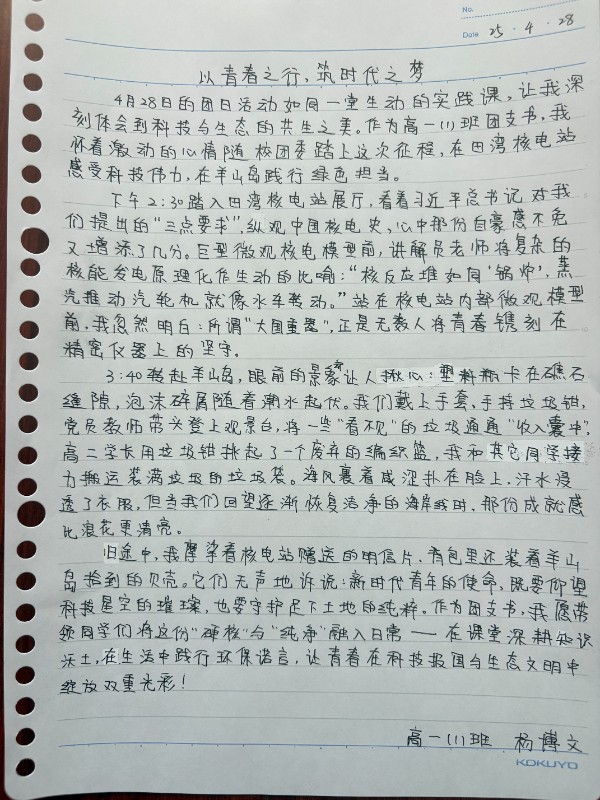 No.
Date 25 · 4 · 28
以青春之行，筑时代之梦
4月28日的团日活动如同一堂生动的实践课，让我深
刻体会到科技与生态的共生之美。作为高一(1)班团支书，我
怀着激动的心情随校团委踏上这次征程，在田湾核电站
感受科技伟力，在羊山岛践行绿色担当。
下午2:30踏入田湾核电站展厅，看着习近平总书记对我
们提出的“三点要求”，纵观中国核电史、心中那份自豪感不免
又增添了几分。巨型微观核电模型前，讲解员老师将复杂的
核能发电原理化作生动的比喻：“核反应堆如同‘锅炉’，蒸
汽推动汽轮机就像水车转动。”站在核电站内部微观模型
前，我忽然明白：所谓“大国重器”，正是无数人将青春镌刻在
精密仪器上的坚守。
3:40转赴羊山岛，眼前的景象让人揪心：塑料瓶卡在礁石
缝隙，泡沫碎屑随着潮水起伏。我们戴上手套、手持垃圾钳，
党员教师带头登上观景台，将一些“看不见”的垃圾通通“收入囊中”，
高二学长用垃圾钳挑起了一个废弃的编织篮，我和其它同学接
力搬运装满垃圾的垃圾袋。海风裹着咸涩扑在脸上，汗水浸
透了衣服，但当我们回望逐渐恢复洁净的海岸线时，那份成就感
比浪花更清亮。
归途中，我摩挲着核电站赠送的明信片，背包里还装着羊山
岛捡到的贝壳。它们无声地诉说：新时代青年的使命，既要仰望
科技星空的璀璨，也要守护足下土地的纯粹。作为团支书，我愿带
领同学们将这份“硬核”与“纯净”融入日常——在课堂深耕知识
沃土，在生活中践行环保诺言，让青春在科技报国与生态文明中
绽放双重光彩！
高一(1)班 杨博文
KOKUYO